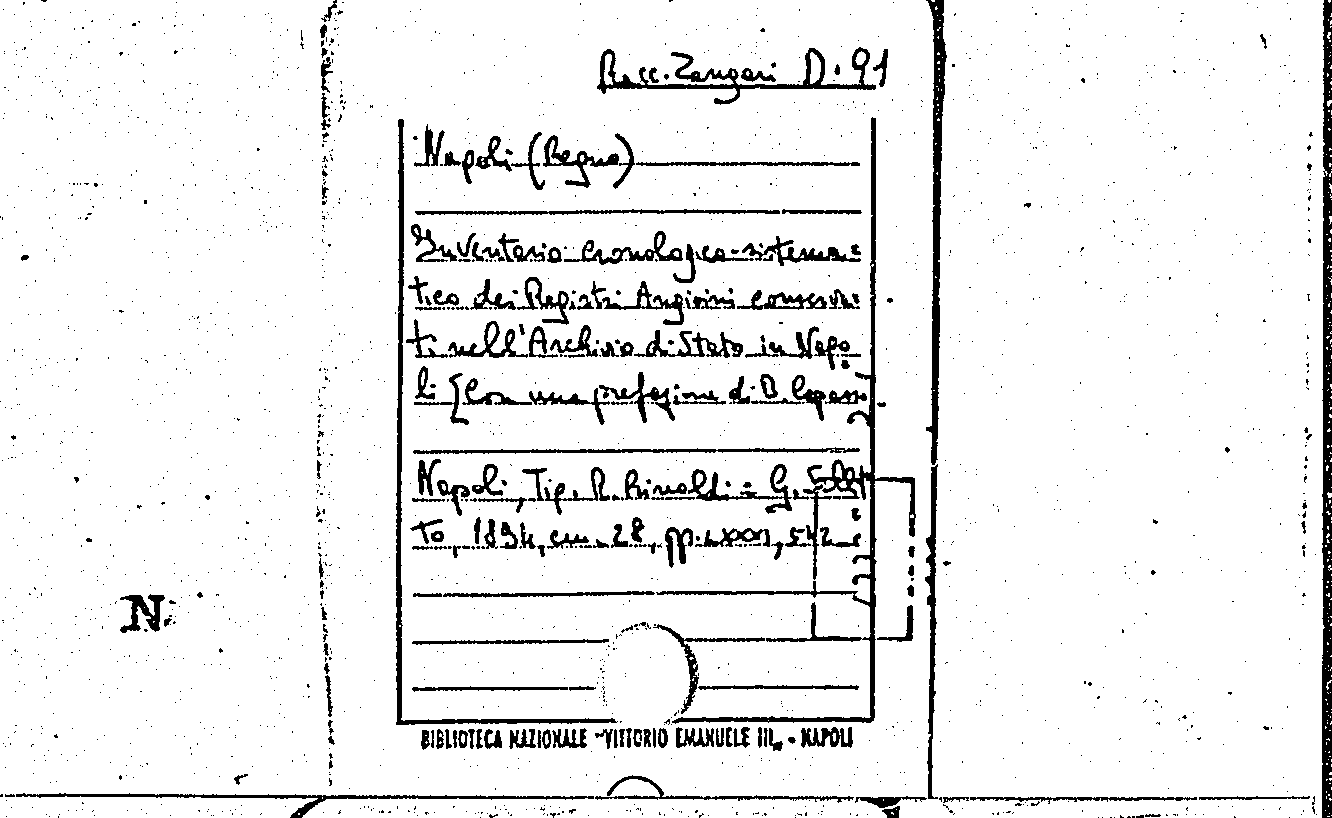 Racc. Zangari D. 91
Napoli (Regno)
Inventario cronologico-sistema=
tico dei Registri Angioini conserva=
ti nell'Archivio di Stato in Napo
li [Con una prefazione di B. Capasso]
Napoli, Tip. R. Rinaldi = G.
to, 1894, cm. 28, pp. LXXXII, 542
N
BIBLIOTECA NAZIONALE "VITTORIO EMANUELE III„ - NAPOLI